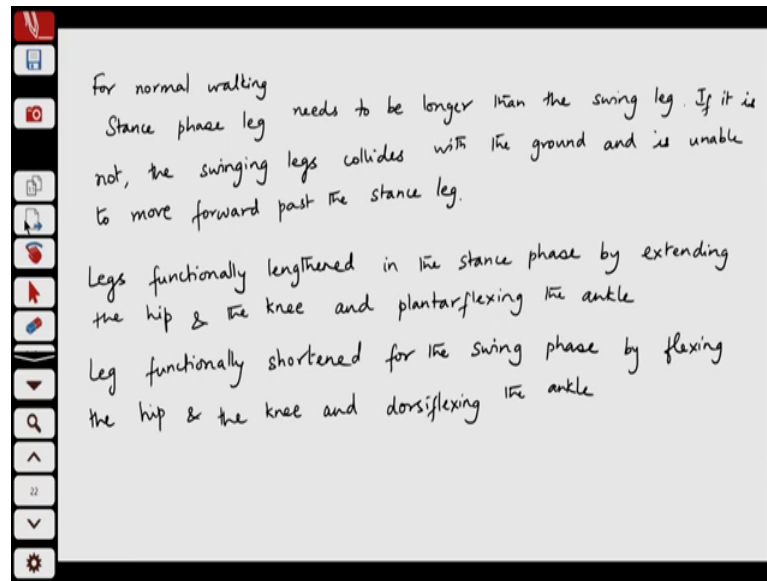 For normal walking
Stance phase leg needs to be longer than the swing leg. If it is
not, the swinging legs collides with the ground and is unable
to move forward past the stance leg.
Legs functionally lengthened in the stance phase by extending
the hip & the knee and plantarflexing the ankle
Leg functionally shortened for the swing phase by flexing
the hip & the knee and dorsiflexing the ankle
22